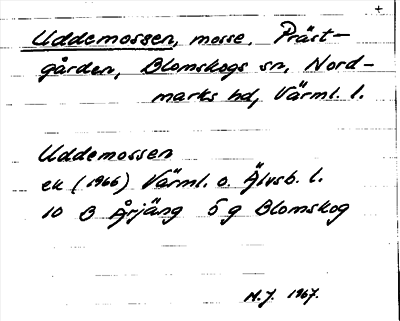 +
Uddemossen, mosse. Präst-
gården, Blomskogs sn, Nord-
marks hd, Värml. l.
Uddemossen
ek (1966) Värml. o. Älvsb. l.
10 B Årjäng 5 g Blomskog
N.J. 1967.